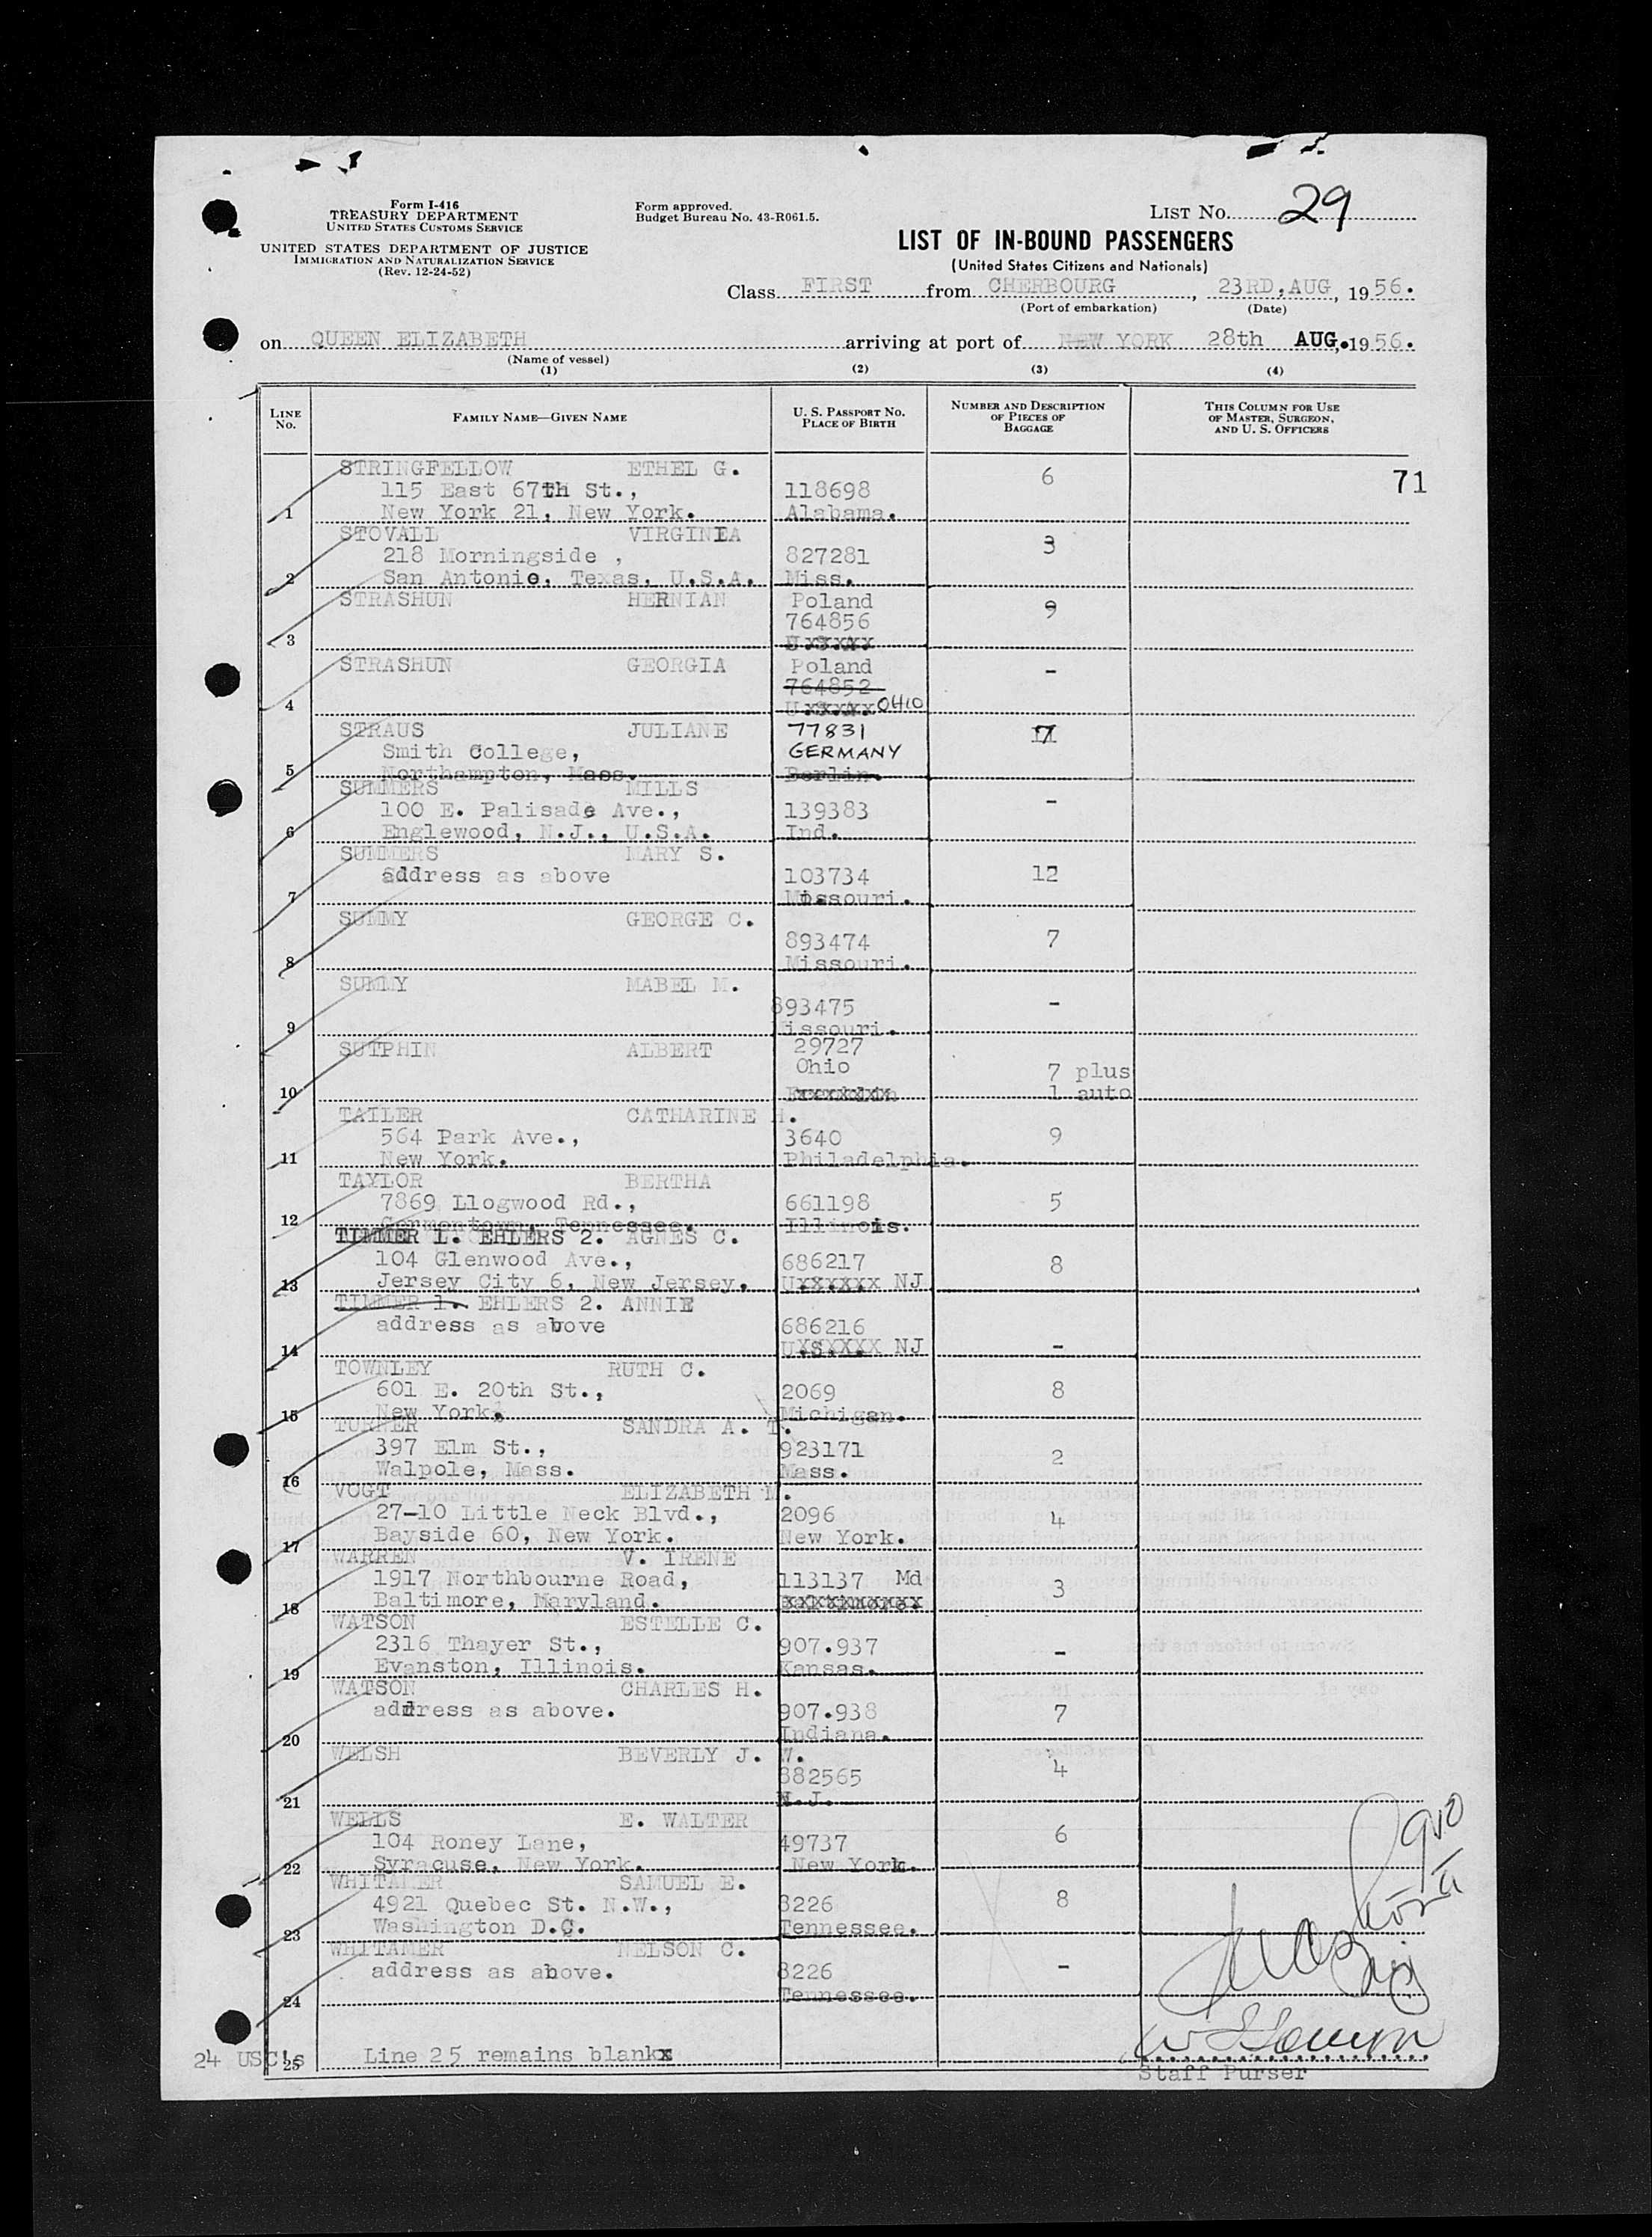 Form I-416
TREASURY DEPARTMENT
UNITED STATES CUSTOMS SERVICE
UNITED STATES DEPARTMENT OF JUSTICE
IMMIGRATION AND NATURALIZATION SERVICE
(Rev. 12-24-52)
Form approved.
Budget Bureau No. 43-R061.5.
LIST No. 29
LIST OF IN-BOUND PASSENGERS
(United States Citizens and Nationals)
Class FIRST from CHERBOURG, 23RD, AUG, 1956.
(Port of embarkation) (Date)
on QUEEN ELIZABETH arriving at port of NEW YORK 28th AUG, 1956.
(Name of vessel)
(1) (2) (3) (4)
LINE No. FAMILY NAME—GIVEN NAME U. S. PASSPORT No. PLACE OF BIRTH NUMBER AND DESCRIPTION OF PIECES OF BAGGAGE THIS COLUMN FOR USE OF MASTER, SURGEON, AND U. S. OFFICERS
STRINGFELLOW ETHEL G. 6
71
115 East 67th St., 118698
1 New York 21, New York. Alabama.
STOVALL VIRGINIA 3
218 Morningside , 827281
2 San Antonio, Texas, U.S.A. Miss.
STRASHUN HERNIAN Poland 9
764856
3
STRASHUN GEORGIA Poland -
764852
4 OHIO
STRAUS JULIANE 77831
Smith College, GERMANY
5 Northampton, Mass. Berlin.
SUMMERS MILLS -
100 E. Palisade Ave., 139383
6 Englewood, N.J., U.S.A. Ind.
SUMMERS MARY S.
address as above 103734 12
7 Missouri.
SUMMY GEORGE C.
893474 7
8 Missouri.
SUMMY MABEL M.
893475 -
9 Missouri.
SUTPHIN ALBERT 29727
Ohio 7 plus
10 1 auto
TAILER CATHARINE H.
564 Park Ave., 3640 9
11 New York. Philadelphia.
TAYLOR BERTHA
7869 Llogwood Rd., 661198 5
12 Germantown, Tennessee. Illinois.
TIMMER 1. EHLERS 2. AGNES C.
104 Glenwood Ave., 686217 8
13 Jersey City 6, New Jersey. NJ
TIMMER 1. EHLERS 2. ANNIE
address as above 686216
14 NJ -
TOWNLEY RUTH C.
601 E. 20th St., 2069 8
15 New York. Michigan.
TURNER SANDRA A. T.
397 Elm St., 923171 2
16 Walpole, Mass. Mass.
VOGT ELIZABETH M.
27-10 Little Neck Blvd., 2096 4
17 Bayside 60, New York. New York.
WARREN V. IRENE
1917 Northbourne Road, 113137 Md 3
18 Baltimore, Maryland.
WATSON ESTELLE C.
2316 Thayer St., 907.937 -
19 Evanston, Illinois. Kansas.
WATSON CHARLES H.
address as above. 907.938 7
20 Indiana.
WELSH BEVERLY J. W.
882565 4
21 N.J.
WELLS E. WALTER
104 Roney Lane, 49737 6
22 Syracuse, New York. New York.
WHITAMER SAMUEL E.
4921 Quebec St. N.W., 8226 8
23 Washington D.C. Tennessee.
WHITAMER NELSON C.
address as above. 8226 -
24 Tennessee.
24 USC's 25 Line 25 remains blank
Staff Purser